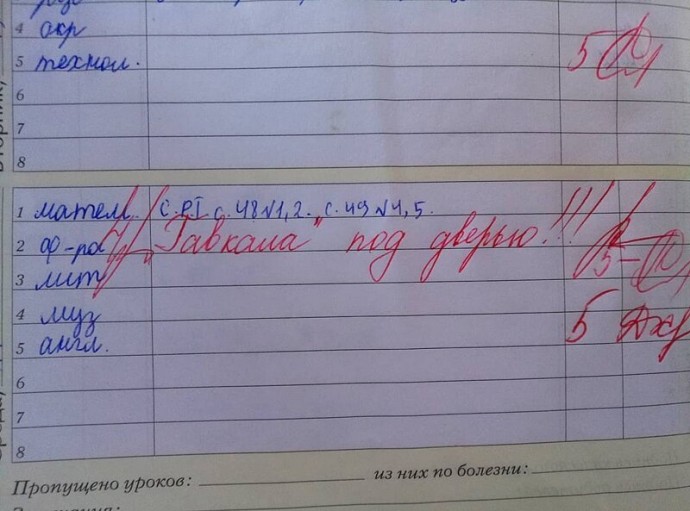 4 окр
5 технол. 5
6
7
8
1 матем. с. РТ с. 48 №1,2. с. 49 №4,5.
2 ф-ра "Гавкала" под дверью!!!
3 лит 5-
4 муз 5
5 англ.
6
7
8
Пропущено уроков: из них по болезни: